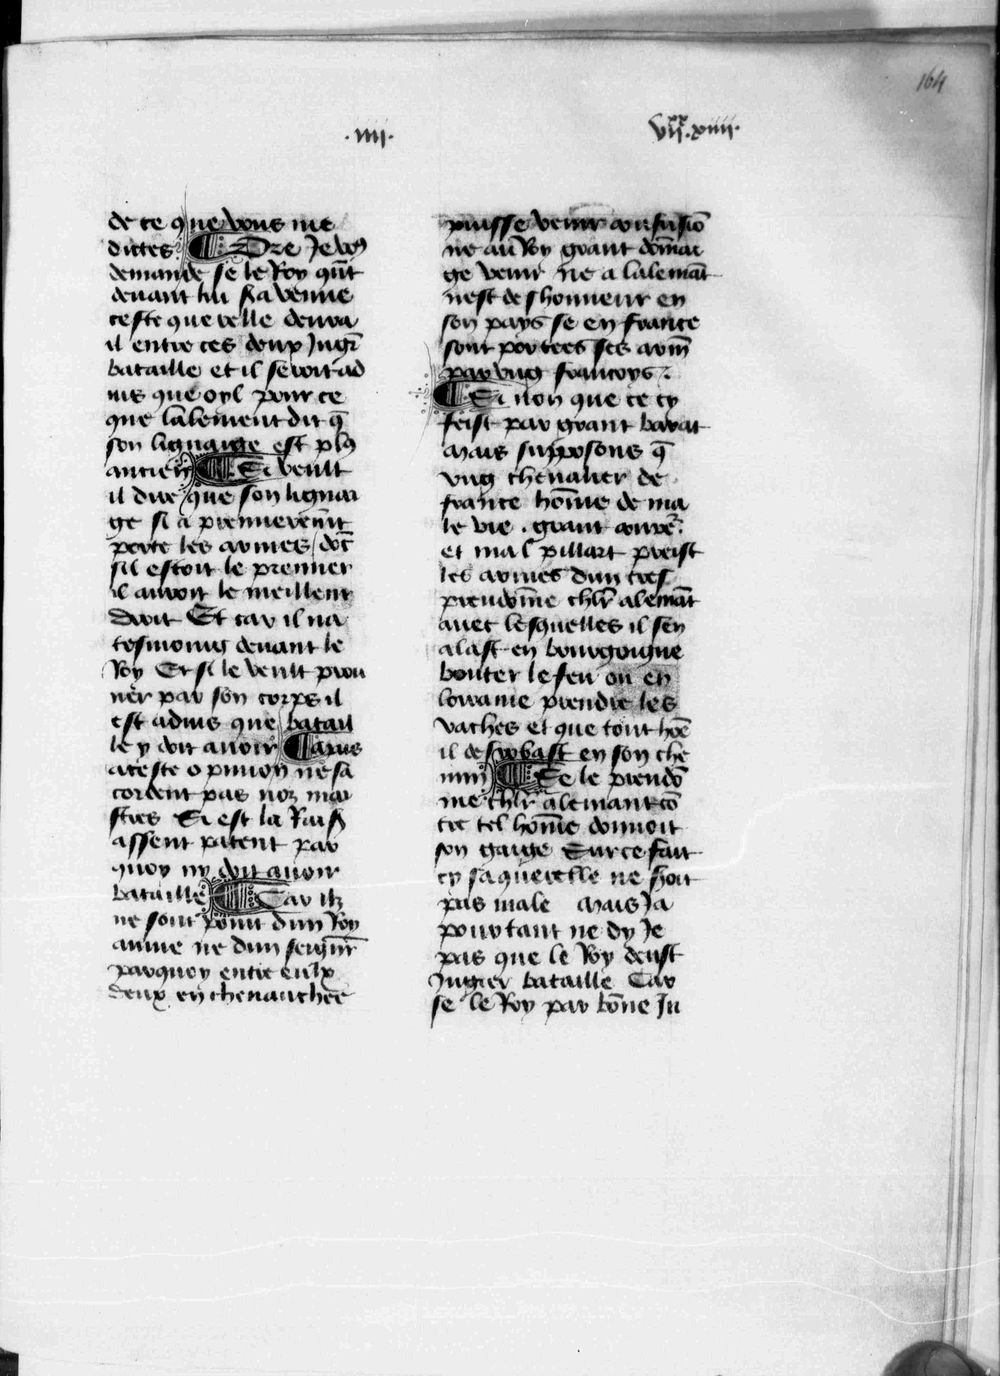 164
.iiii.
viixx.xiiii.
de ce que vous me
dictes ¶ Ore Je vo9
demande se le Roy qñt
devant lui sa venue
ceste querelle devra
il entre ces deux Jugr̃
bataille et il seroit ad
uis que oyl pour ce
que lalement dit q̃
son lignaige est pl9
ancien ¶ Si veult
il dire que son lignai
ge si a premieremñt
porte les armes / dõt
sil estoit le premier
il auroit le meilleur
droit Et car il na
tesmoing deuant le
Roy Et si le veult prou
uer par son corps il
est aduis que batail
le y doit auoir ¶ Mais
a ceste opinion ne sa
cordent pas noz mai
stres Si est la Raisõ
assent patent par
quoy ny doit auoir
bataille ¶ Car ilz
ne sont point dun Roy
aume ne dun seignr̃
parquoy entre eulx
deux en cheuauchee
puisse venir confusiõ
ne au Roy grant dõmai
ge venir ne a lalemãt
nest deshonneur en
son pays se en france
sont portees ses arm̃
par vng francoys.
¶ Si non que ce cy
feist par grant barat
Mais supposons q̃
vng cheualier de
france hõme de ma
le vie . grant
et mal pillart preist
les armes dun tres
preudõme chlr̃ alemãt
auec lesquelles il sen
alast en bourgoigne
bouter le feu ou en
loraine prendre les
vaches et que tout hõe
il desrobast en son che
min ¶ Se le preudõ
me chlr̃ alemant cõ
tre tel hõme donnoit
son gaige Sur ce fait
cy sa querelle ne soit
pas male Mais Ja
pourtant ne dy Je
pas que le Roy deust
Jugier bataille Car
se le Roy par bõne Ju